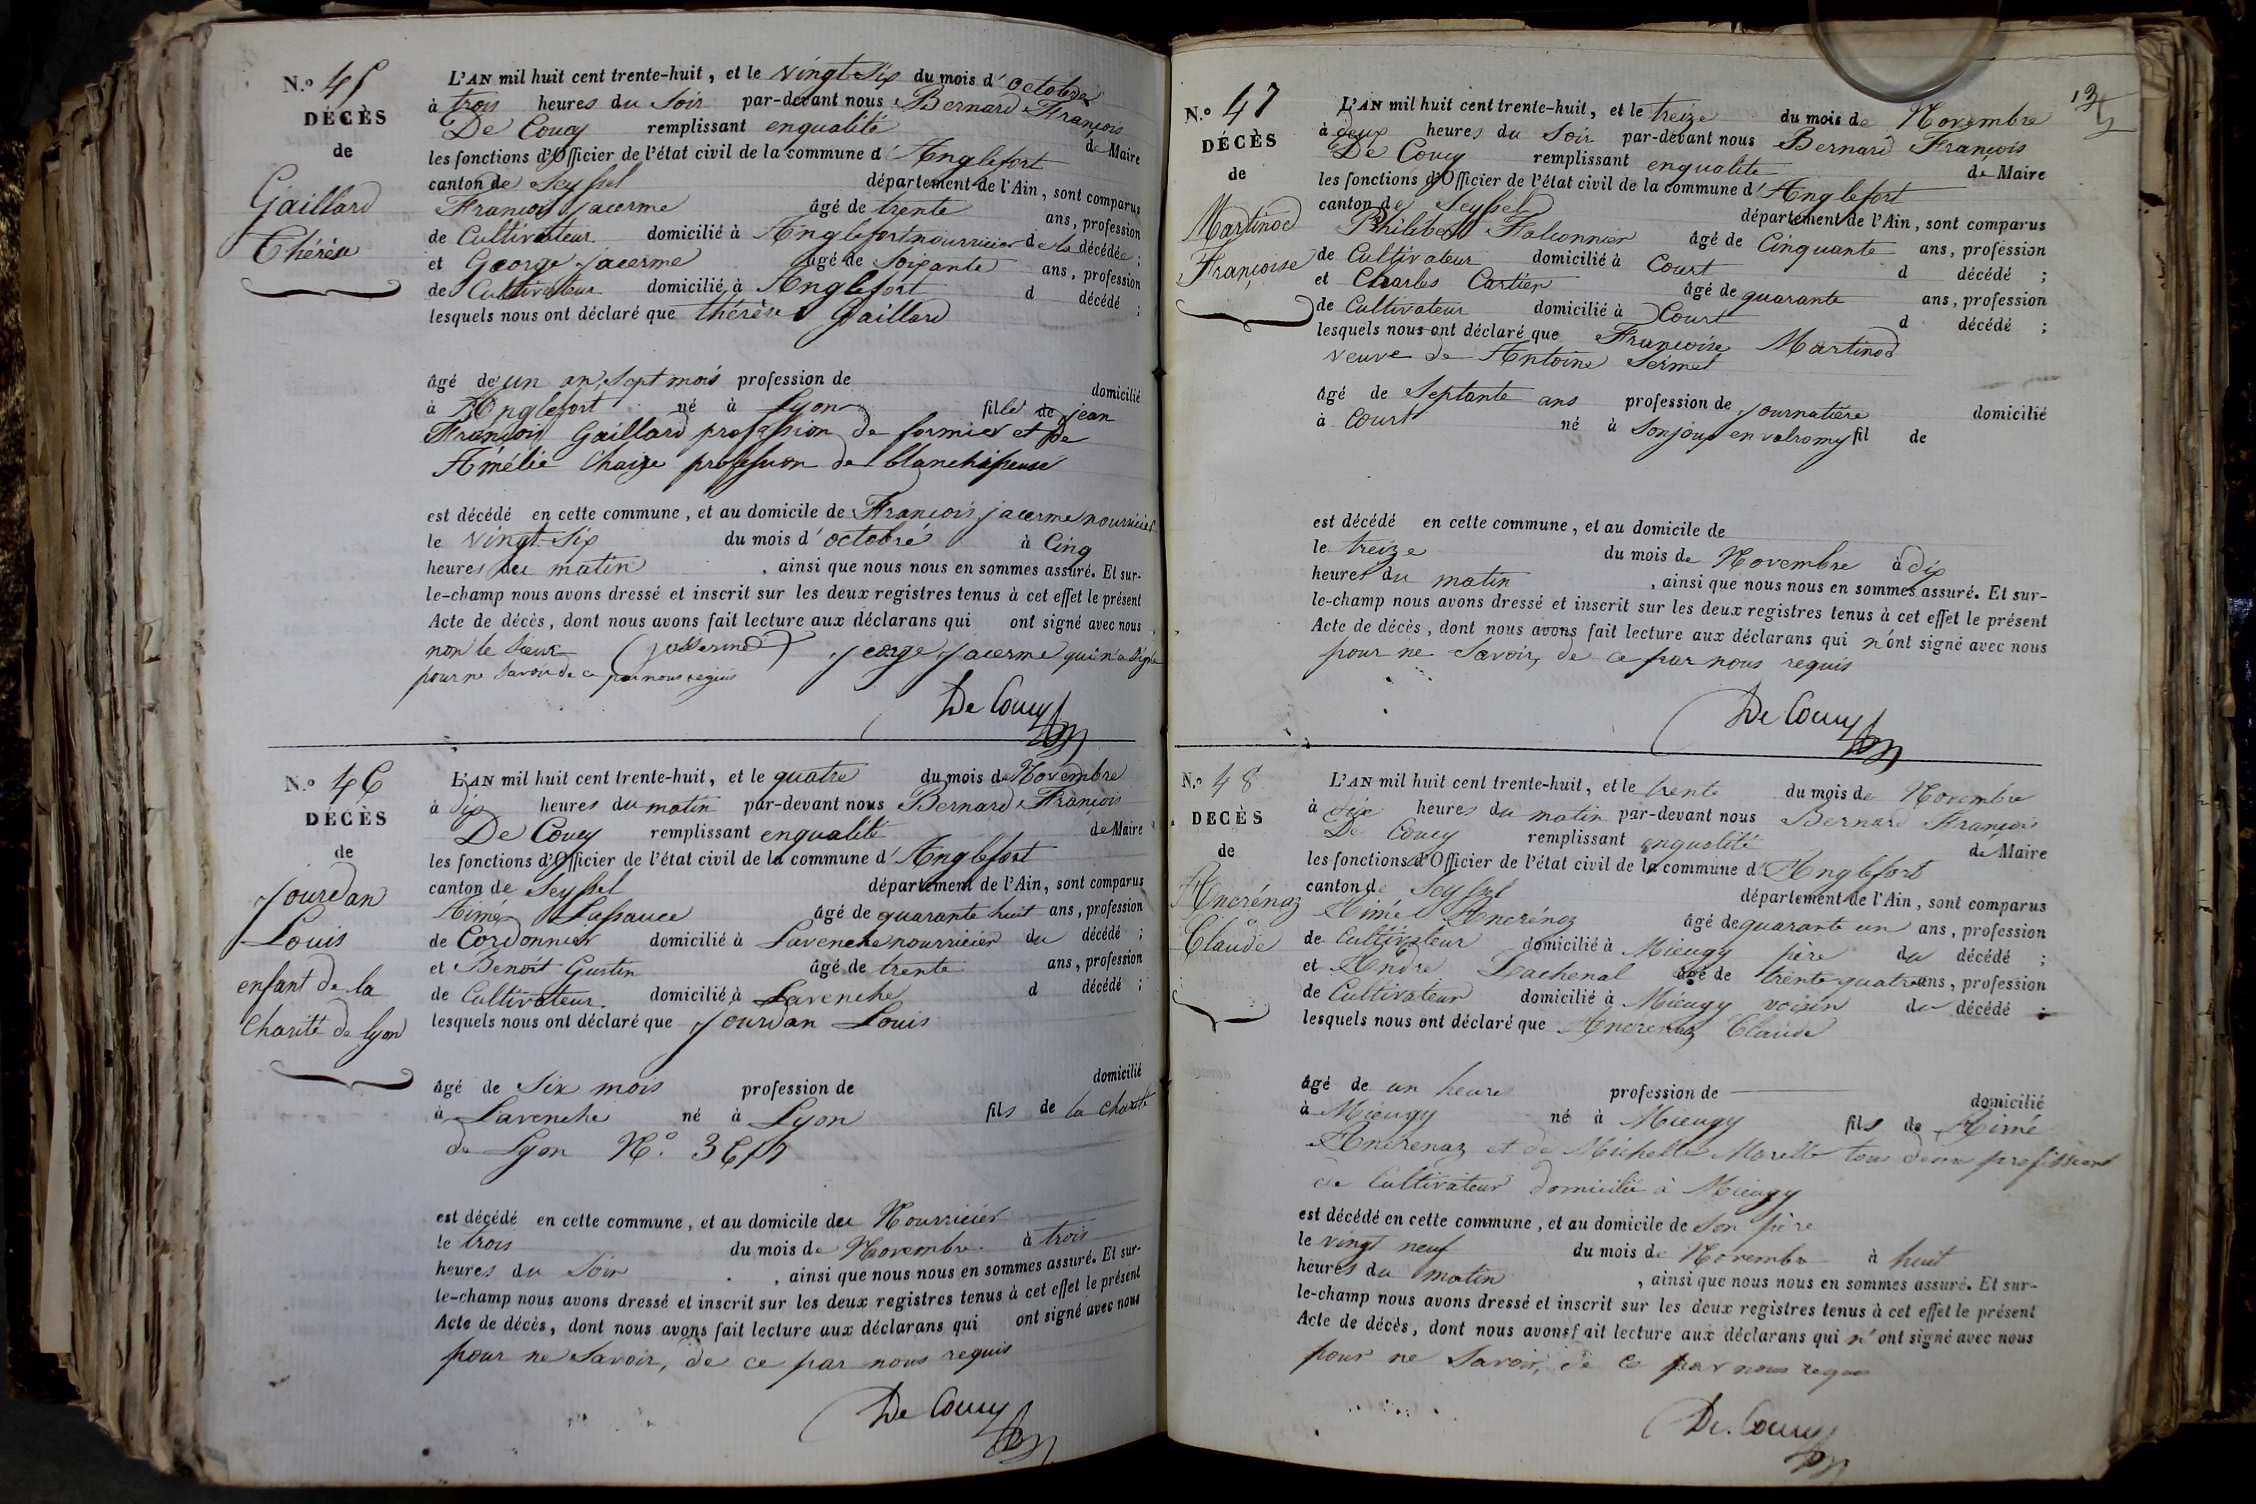 N.º 45
DÉCÈS
de
Gaillard
Thérèse
L'AN mil huit cent trente-huit, et le vingt Six du mois d'octobre
à trois heures du Soir par-devant nous Bernard François
De Coucy remplissant enqualité de Maire
les fonctions d'Officier de l'état civil de la commune d'Anglefort
canton de Seyssel département de l'Ain, sont comparus
François jacerme âgé de trente ans, profession
de Cultivateur domicilié à Anglefort nourricier de la décédée ;
et George jacerme âgé de Soixante ans, profession
de Cultivateur domicilié à Anglefort d décédé ;
lesquels nous ont déclaré que thérèse Gaillard
âgé de un an, Sept mois profession de domicilié
à Anglefort né à Lyon fille de jean
François Gaillard profession de formier et de
Amélie Chaize profession de blanchisseuse
est décédé en cette commune, et au domicile de François jacerme nourricier
le vingt Six du mois d'octobre à Cinq
heures du matin , ainsi que nous nous en sommes assuré. Et sur-
le-champ nous avons dressé et inscrit sur les deux registres tenus à cet effet le présent
Acte de décès, dont nous avons fait lecture aux déclarans qui ont signé avec nous
non le Sieur jeorge jacerme qui n'a Signé
pour ne Savoir de ce par nous requis
De Coucy
N.º 46
DÉCÈS
de
Jourdan
Louis
enfant de la
Charité de Lyon
L'AN mil huit cent trente-huit, et le quatre du mois de Novembre
à dix heures du matin par-devant nous Bernard François
De Coucy remplissant enqualité de Maire
les fonctions d'Officier de l'état civil de la commune d'Anglefort
canton de Seyssel département de l'Ain, sont comparus
Aimé Lassauce âgé de quarante huit ans, profession
de Cordonnier domicilié à Lavenche nourricier du décédé ;
et Benoît Gustin âgé de trente ans, profession
de Cultivateur domicilié à Lavenche d décédé ;
lesquels nous ont déclaré que Jourdan Louis
âgé de Six mois profession de domicilié
à Lavenche né à Lyon fils de la charité
de Lyon N.º
est décédé en cette commune, et au domicile du Nourricier
le trois du mois de Novembre à trois
heures du Soir , ainsi que nous nous en sommes assuré. Et sur-
le-champ nous avons dressé et inscrit sur les deux registres tenus à cet effet le présent
Acte de décès, dont nous avons fait lecture aux déclarans qui ont signé avec nous
pour ne Savoir, de ce par nous requis
De Coucy
N.º 47
DÉCÈS
de
Martinod
Françoise
L'AN mil huit cent trente-huit, et le treize du mois de Novembre
à deux heures du Soir par-devant nous Bernard François
De Coucy remplissant enqualité de Maire
les fonctions d'Officier de l'état civil de la commune d'Anglefort
canton de Seyssel département de l'Ain, sont comparus
Philibert Falconnier âgé de Cinquante ans, profession
de Cultivateur domicilié à Court d décédé ;
et Charles Cartier âgé de quarante ans, profession
de Cultivateur domicilié à Court d décédé ;
lesquels nous ont déclaré que Françoise Martinod
veuve de Antoine Sermet
âgé de Septante ans profession de journalière domicilié
à Court né à Sonjoux en valromy fil de
est décédé en cette commune, et au domicile de
le treize du mois de Novembre à dix
heures du matin , ainsi que nous nous en sommes assuré. Et sur-
le-champ nous avons dressé et inscrit sur les deux registres tenus à cet effet le présent
Acte de décès, dont nous avons fait lecture aux déclarans qui n'ont signé avec nous
pour ne Savoir, de ce par nous requis
De Coucy
N.º 48
DÉCÈS
de
Ancrénaz
Claude
L'AN mil huit cent trente-huit, et le trente du mois de Novembre
à dix heures du matin par-devant nous Bernard François
De Coucy remplissant enqualité de Maire
les fonctions d'Officier de l'état civil de la commune d'Anglefort
canton de Seyssel département de l'Ain, sont comparus
Aimé Ancrénaz âgé de quarante un ans, profession
de Cultivateur domicilié à Mieugy père du décédé ;
et André Lachenal âgé de trente quatre ans, profession
de Cultivateur domicilié à Mieugy voisin du décédé ;
lesquels nous ont déclaré que Ancrenaz Claude
âgé de un heure profession de domicilié
à Mieugy né à Mieugy fils de Aimé
Ancrenaz et de Michelle Morelle tous deux profession
de Cultivateur domicilié à Mieugy
est décédé en cette commune, et au domicile de Son père
le vingt neuf du mois de Novembre à huit
heures du matin , ainsi que nous nous en sommes assuré. Et sur-
le-champ nous avons dressé et inscrit sur les deux registres tenus à cet effet le présent
Acte de décès, dont nous avons fait lecture aux déclarans qui n'ont signé avec nous
pour ne Savoir, de ce par nous requis
De Coucy